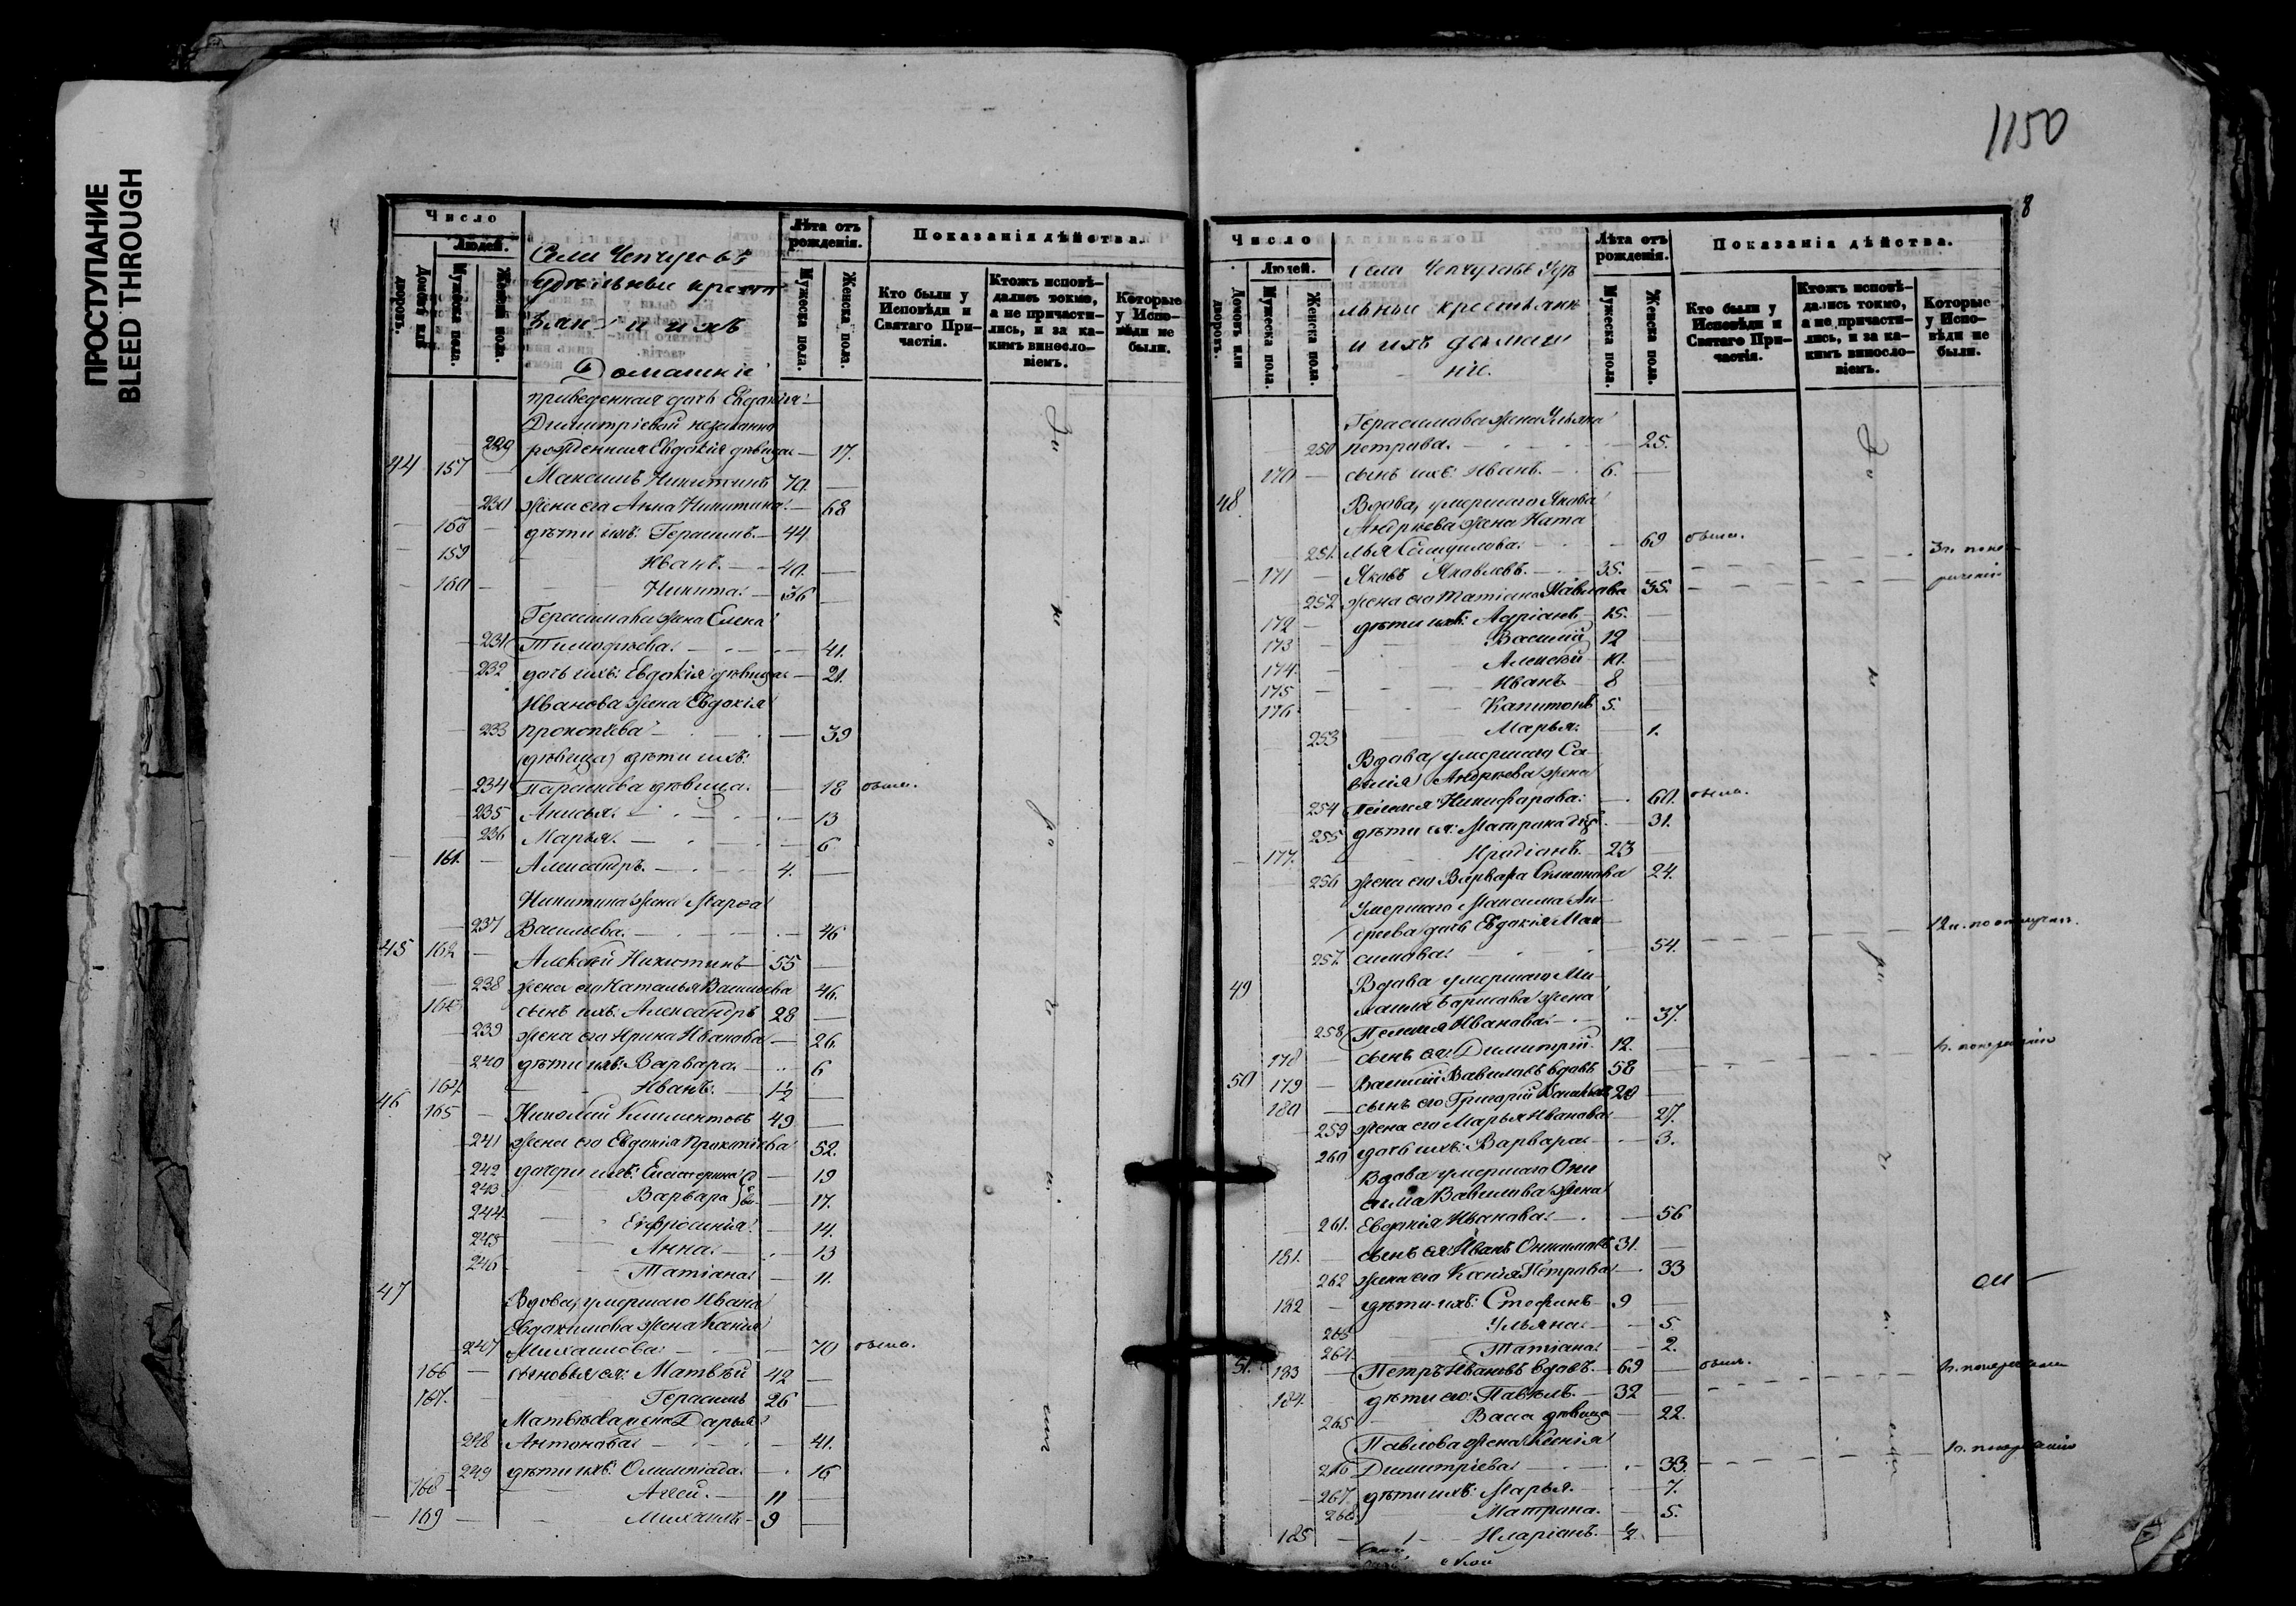 ПРОСТУПАНИЕ
BLEED THROUGH
1150
8
Число
Людей.
Домовъ или дворовъ.
Мужеска пола.
Женска пола.
Лѣта отъ рожденія.
Мужеска пола.
Женска пола.
Показанія дѣйства.
Кто были у Исповѣди и Святаго При-
частія.
Ктожъ исповѣ-
дались токмо,
а не причасти-
лись, и за ка-
кимъ виносло-
віемъ.
Которые
у Испо-
вѣди не
были.
Села Чепчугова
Удѣльные крест
ьяне и ихъ
Домашніе
приведенная дочь Евдокія
Димитріевой незаконно
229 рожденная Евдокія дѣвица 17.
44 157 Максимъ Никитинъ 70.
230 жена его Анна Никитина 68
158 дѣти ихъ: Герасимъ 44
159 Иванъ 40.
160 Никита 36
Герасимова жена Елена
231 Тимофѣева 41.
232 дочь ихъ: Евдокія дѣвица 21.
Иванова жена Евдокія
233 Прокопьева 39
(дѣвица) дѣти ихъ:
234 Парасковья дѣвица 18
235 Анисья 13
236 Марья 6
161. Александръ 4.
Никитина жена Марѳа
237 Васильева 46
45 162 Алексѣй Никитинъ 55
238 жена его Наталья Васильева 46.
163 сынъ ихъ: Александръ 28
239 жена его Ирина Иванова 26
240 дѣти ихъ: Варвара 6
164. Иванъ 1½
46 165 Николай Климентовъ 49
241 жена его Евдокія Прокопьева 52.
242 дочери ихъ: Екатерина 19
243 Варвара 17.
244. Евфросинія 14.
245 Анна 13
246 Татіана 11.
47 Вдова, умершаго Ивана
Евдокимова жена Ксенія
247 Михаилова 70
166 сыновья ея: Матвѣй 42
167. Герасимъ 26
Матвѣева жена Дарья
248 Антонова 41.
249 дѣти ихъ: Олимпіада 16
168 11
169 Михаилъ 9
Число
Людей.
Домовъ или дворовъ.
Мужеска пола.
Женска пола.
Лѣта отъ рожденія.
Мужеска пола.
Женска пола.
Показанія дѣйства.
Кто были у Исповѣди и Святаго При-
частія.
Ктожъ исповѣ-
дались токмо,
а не причасти-
лись, и за ка-
кимъ виносло-
віемъ.
Которые
у Испо-
вѣди не
были.
Села Чепчугова Удѣ
льные крестьяне
и ихъ домаш
ніе.
Герасимова жена Ульяна
250 Петрова 25.
170 сынъ ихъ: Иванъ 6.
48 Вдова, умершаго Якова
Андреева жена Ната
251. лья Самуилова 69
171 Яковъ Яковлевъ 35.
252 жена его Татіана Павлова 35.
172 дѣти ихъ: Адріанъ 15.
173 Василій 12
174 Алексѣй 10.
175 Иванъ 8
176 Капитонъ 5.
253 Марья 1.
Вдова, умершаго Са
велія Андреева жена
254 Пелагея Никифорова 60.
255 дѣти ея: Матрена 31.
177. 23
256 жена его Варвара Симонова 24.
умершаго Максима Ан-
дреева дочь Евдокія Мак
257. симова 54.
49 Вдова умершаго Ми-
хаила Борисова жена
258 Пелагея Иванова 37.
178 сынъ ея: Димитрій 12.
50 179 Василій Вавиловъ вдовъ 58
180 сынъ его Григорій Васильевъ 20
259 жена его Марья Иванова 27.
260 дочь ихъ: Варвара 3.
Вдова умершаго Они
сима Вавилова жена
261. Евдокія Иванова 56
181. сынъ ея: Иванъ Онисимовъ 31.
262 жена его Ксенія Петрова 33
182 дѣти ихъ: 9
263 Ульяна 5.
264. Татіана 2.
51. 183 Петръ Ивановъ вдовъ 69
184. дѣти его: Павелъ 32
265 Васса дѣвица 22.
Павлова жена Ксенія
266 Димитріева 33.
267. дѣти ихъ: Марья 7.
268. Матрона 5.
185 Иларіонъ ½